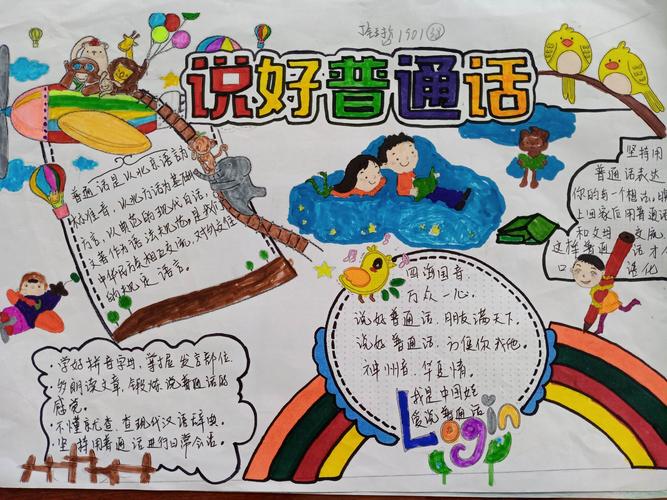 1901 38
说好普通话
普通话是以北京语音为
标准音，以北方话为基础
方言，以典范的现代白话
文著作为语法规范，是我们
中华民族相互交流，对外交往
的规定语言。
坚持用
普通话表达
你的每一个想法，晚
上回家后用普通话
和父母交流，
这样普通话才
口语化
四海同音，
万众一心。
说好普通话，朋友满天下。
说好普通话，方便你我他。
神州音，华夏情。
我是中国娃
爱说普通话
Login
·学好拼音字母，掌握发音部位。
·多朗读文章，锻炼说普通话的
感觉。
·不懂就查，查现代汉语辞典。
·坚持用普通话进行日常会话。